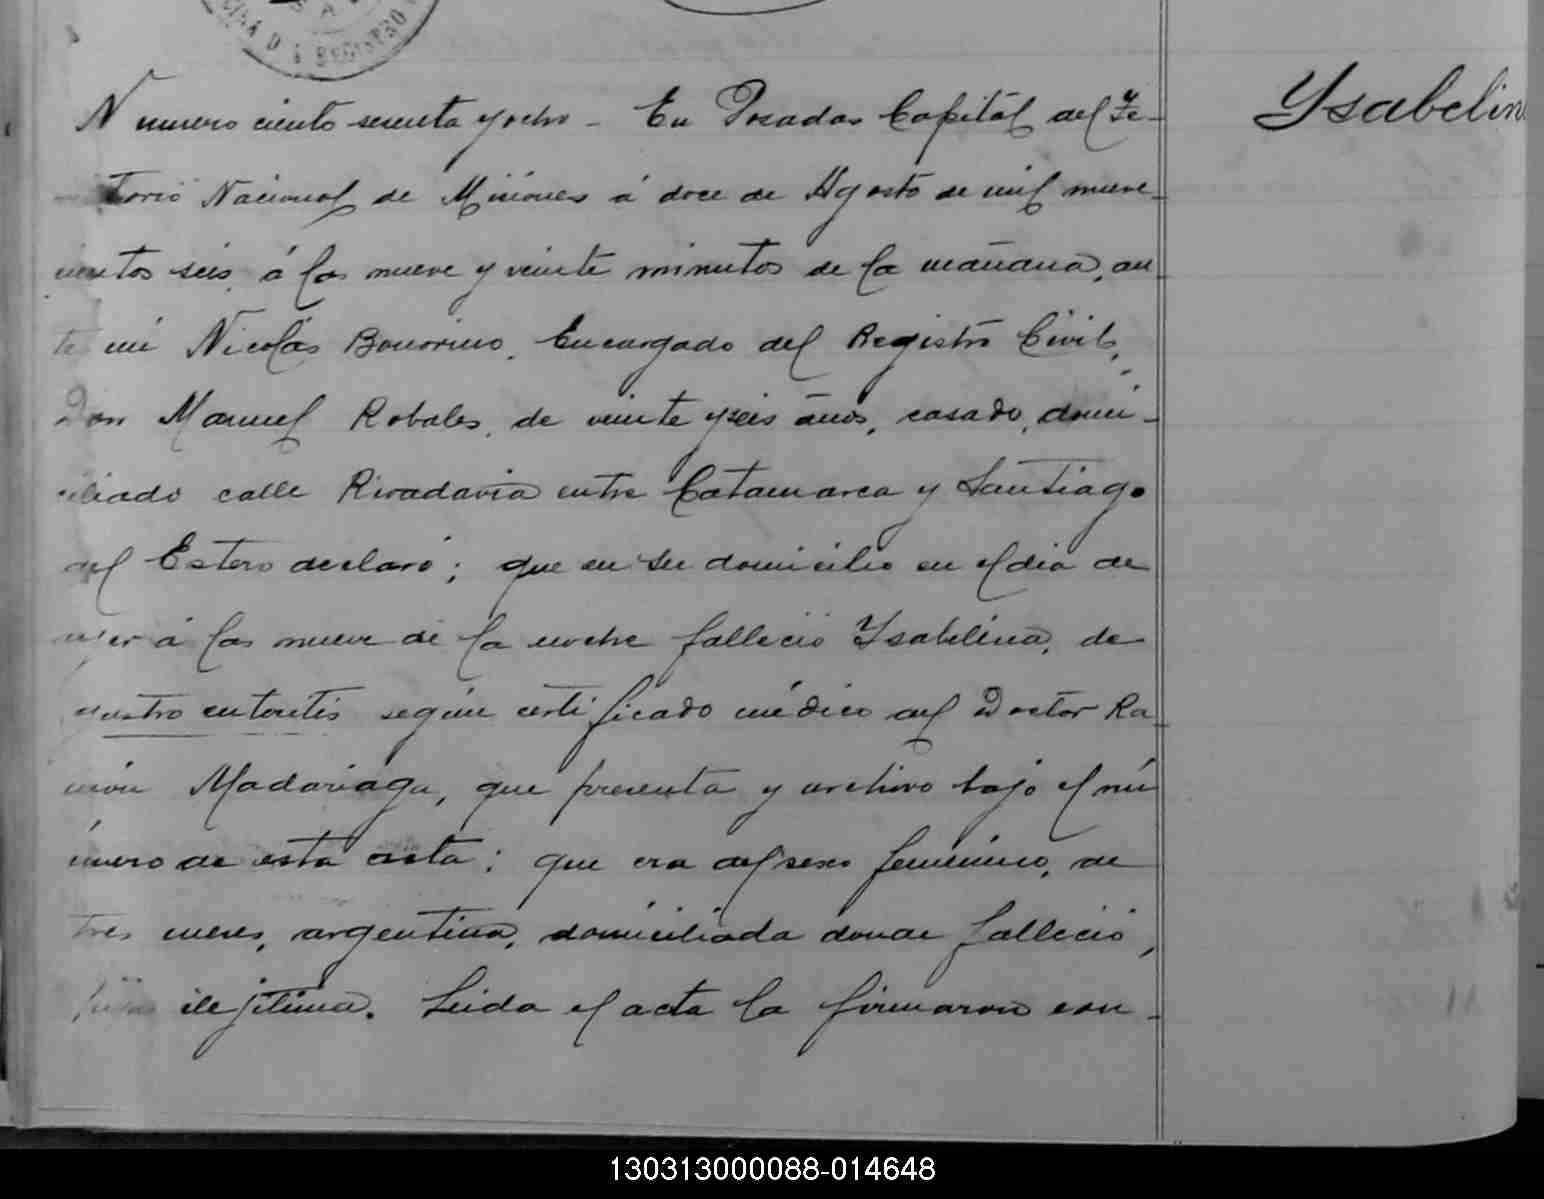 S A
CIAA D L REGISTRO
Ysabelin
Numero ciento sesenta y ocho - En Posadas Capitál del Te-
rritorio Nacional de Misiones á doce de Agosto de mil nueve-
cientos seis, á las nueve y veinte minutos de la mañana, an
te mi Nicolás Bonorino, Encargado del Registro Civil,
Don Manuel Robales, de veinte y seis años, casado, domi-
ciliado calle Rivadavia entre Catamarca y Santiago
del Estero declaró; que en su domicilio en el dia de
ayer á las nueve de la noche falleció Ysabelina, de
gastro enteritis según certificado médico del Doctor Ra-
món Madariaga, que presenta y archivo bajo el nú
mero de esta acta; que era del sexo femenino, de
tres meses, argentina, domiciliada donde falleció,
hija ilejitima. Leida el acta la firmaron con-
130313000088-014648